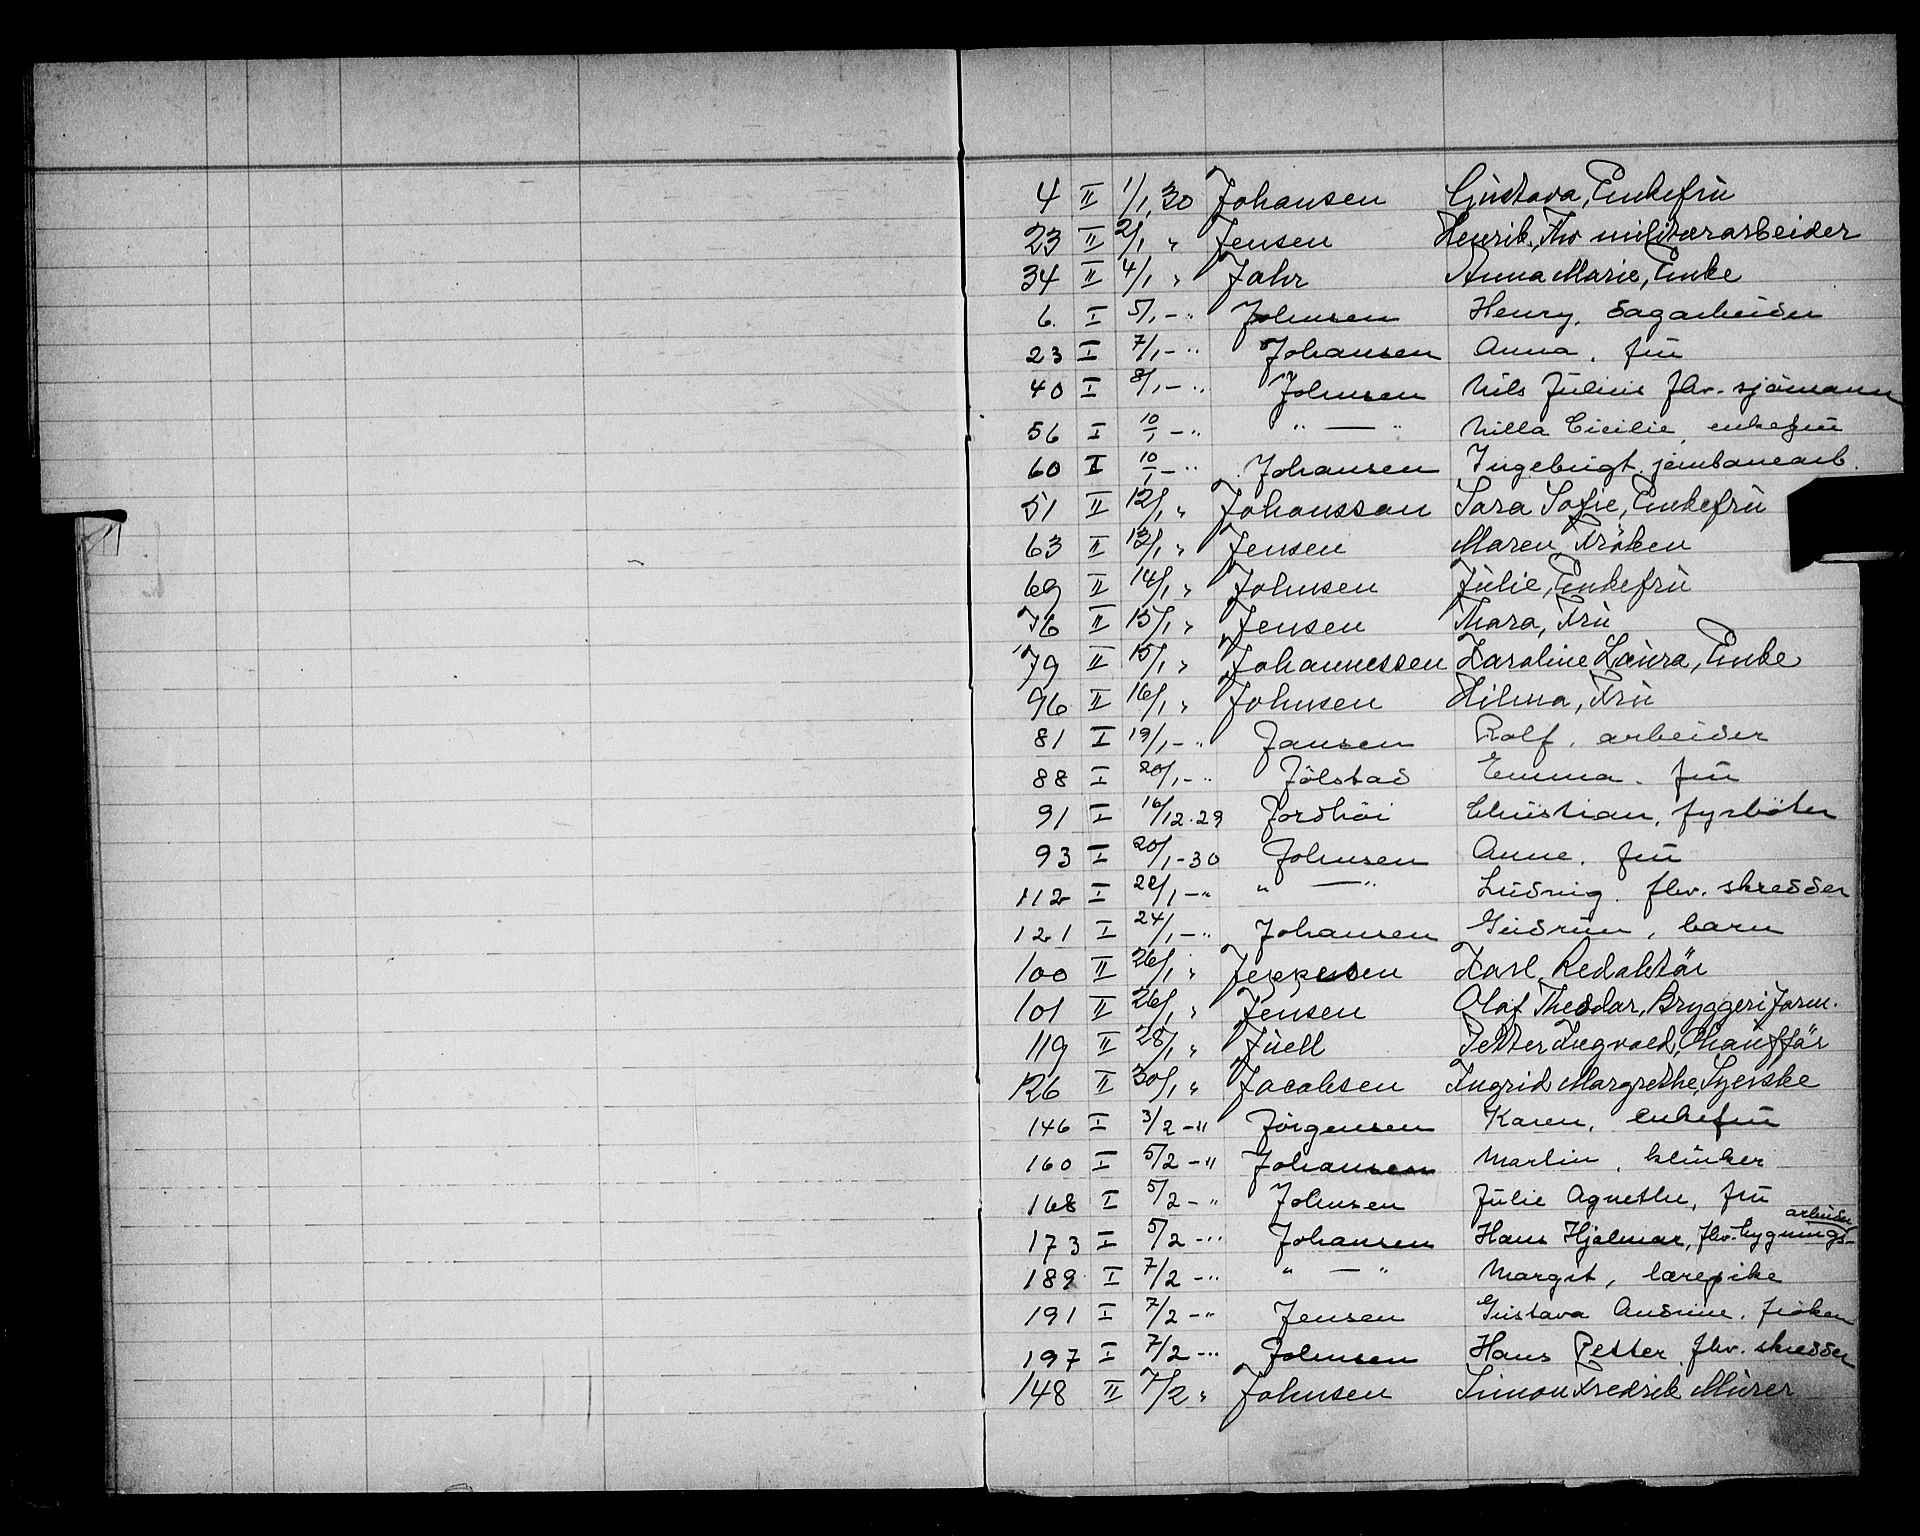 4 II 1/1, 30 Johansen Gustava, Enkefru
23 II 2/1 " Jensen Henrik, Fhv militærarbeider
34 II 4/1 " Jahr Anna Marie, Enke
6. I 5/1 - " Johnsen Henry, sagarbeider
23 I 7/1 - " Johansen Anna, fru
40 I 8/1 - " Johnsen Nils Julius fhv. sjömann
56 I 10/1 - " " — " Nilla Cicilie, enkefru
60 I 10/1 - " Johansen Ingebrigt. jernbanearb.
51 II 12/1 " Johansson Sara Sofie, Enkefru
63 II 13/1 " Jensen Maren, Fröken
69 II 14/1 " Johnsen Julie, Enkefru
76 II 15/1 " Jensen Thora, Fru
79 II 15/1 " Johannessen Karoline Laura, Enke
96 II 16/1 " Johnsen Hilma, Fru
81 I 19/1 - " Jansen Rolf, arbeider
88 I 20/1 - " Jölstad Emma. fru
91 I 16/12.29 Jordhöi Christian, fyrböter
93 I 20/1 - 30 Johnsen Anne, fru
112 I 22/1 - " " — " Ludvig. fhv. skredder
121 I 24/1 - " Johansen Gudrun, barn
100 II 26/1 " Jeppesen Karl, Redaktör
101 II 26/1 " Jensen Olaf Theodor, Bryggeriform.
119 II 28/1 " Juell Petter Ingvald, Chauffør
126 II 30/1 " Jacobsen Ingrid Margrethe, Syerske
146 I 3/2 - " Jørgensen Karen, enkefru
160 I 5/2 - " Johansen Martin, klinker
168 I 5/2 - " Johnsen Julie Agnethe, fru
173 I 5/2 - " Johansen Hans Hjalmar, fhv. bygnings- arbeider
189 I 7/2 - " " — " Margit, lærepike
191 I 7/2 - " Jensen Gustava Andrine, fröken
197 I 7/2 - " Johnsen Hans Petter fhv. skredder
148 II 7/2 " Johnsen Simon Fredrik, Murer